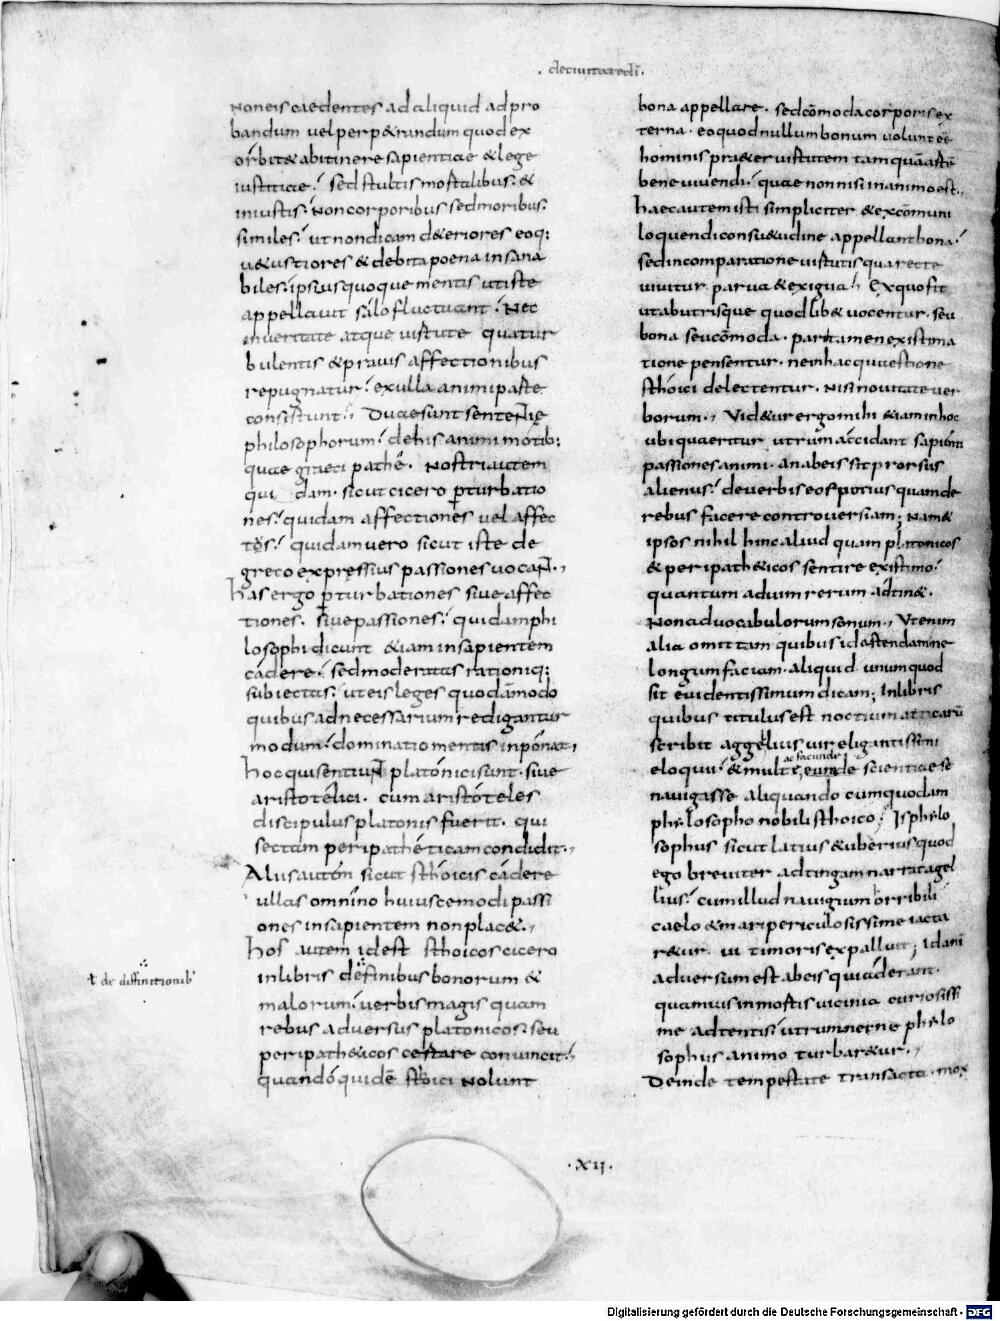 . deciuitatedi .
Noneis caedentes ad aliquid ad pro
bandum uel perp&randum quod ex
orbit& abitinere sapientiae & lege
iustitiae. sed stultis mortalibus. &
iniustis. Non corporibus sed moribus.
similes. ut non dicam d&eriores eoq;
u&ustiores & debita poena insana
biles. ipsius quoque mentis ut iste
appellauit salo fluctuant. Nec
inueritate atque uirtute qua tur
bulentis & prauis affectionibus
repugnatur. exulla animi parte
consistunt. Duae sunt sententię
philosophorum. dehis animi motib;
quae graeci pathe. Nostri autem
qui dam. sicut cicero perturbatio
nes. quidam affectiones uel affec
tos. quidam uero sicut iste de
greco expressius passiones uocant.
has ergo perturbationes siue affec
tiones. siue passiones. quidam phi
losophi dicunt &iam insapientem
cadere. sed moderatas rationiq;
subiectas. ut eis leges quodam modo
quibus adnecessarium redigantur
modum. dominatio mentis inponat,
hoc qui sentiunt platonici sunt. siue
aristotelici. cum aristoteles
discipulus platonis fuerit. qui
sectam peripatheticam condidit.,
Aliis autem sicut sthoicis cadere
ullas omnino huiuscemodi passi
ones insapientem non plac&.,
hos autem idest sthoicos cicero
inlibris definibus bonorum &
ł de diffinitionib'
malorum. uerbis magis quam
rebus aduersus platonicos. seu
peripath&icos certare conuincit.
quandoquidē sthoici Nolunt
bona appellare. sed cōmoda corporis ex
terna. eo quod nullum bonum uolunt ēē
hominis praeter uirtutem tamquā artē
bene uiuendi. quae non nisi inanimo est.,
haec autem isti simpliciter & excōmuni
loquendi consu&udine appellant bona.
sed incomparatione uirtutis qua recte
uiuitur parua & exigua. Ex quo fit
ut abutrisque quodlib& uocentur. seu
bona seu cōmoda. pari tamen existima
tione pensentur. nec inhac quaestione
sthoici delectentur. nisi nouitate uer
borum., Vid&ur ergo mihi &iam inhoc
ubi quaeritur utrum accidant sapienti
passiones animi. an abeis sit prorsus
alienus. deuerbis eos potius quam de
rebus facere controuersiam; Nam &
ipsos nihil hinc aliud quam platonicos
& peripath&icos sentire existimo.
quantum aduim rerum adtin&.
Non ad uocabulorum sonum., Vt enim
alia omittam quibus id ostendam ne
longum faciam. aliquid unum quod
sit euidentissimum dicam; Inlibris
quibus titulus est noctium atticarū
scribit aggelius uir eligantissimi
ac facundę
eloquii. & multe eunde scientiae se
nauigasse aliquando cum quodam
philosopho nobili sthoico; Is philo
sophus sicut latius &uberius quod
ego breuiter adtingam narrat agel
lius. cum illud nauigium orribili
caelo & mari periculosissime iacta
r&ur. ui timoris expalluit; Id ani
aduersum est abeis qui aderant.
quamuis inmortis uicinia curiosissi
me adtentis. utrumnerne philo
sophus animo turbar&ur.,
Deinde tempestate transacta. mox
. XII .
Digitalisierung gefördert durch die Deutsche Forschungsgemeinschaft - DFG